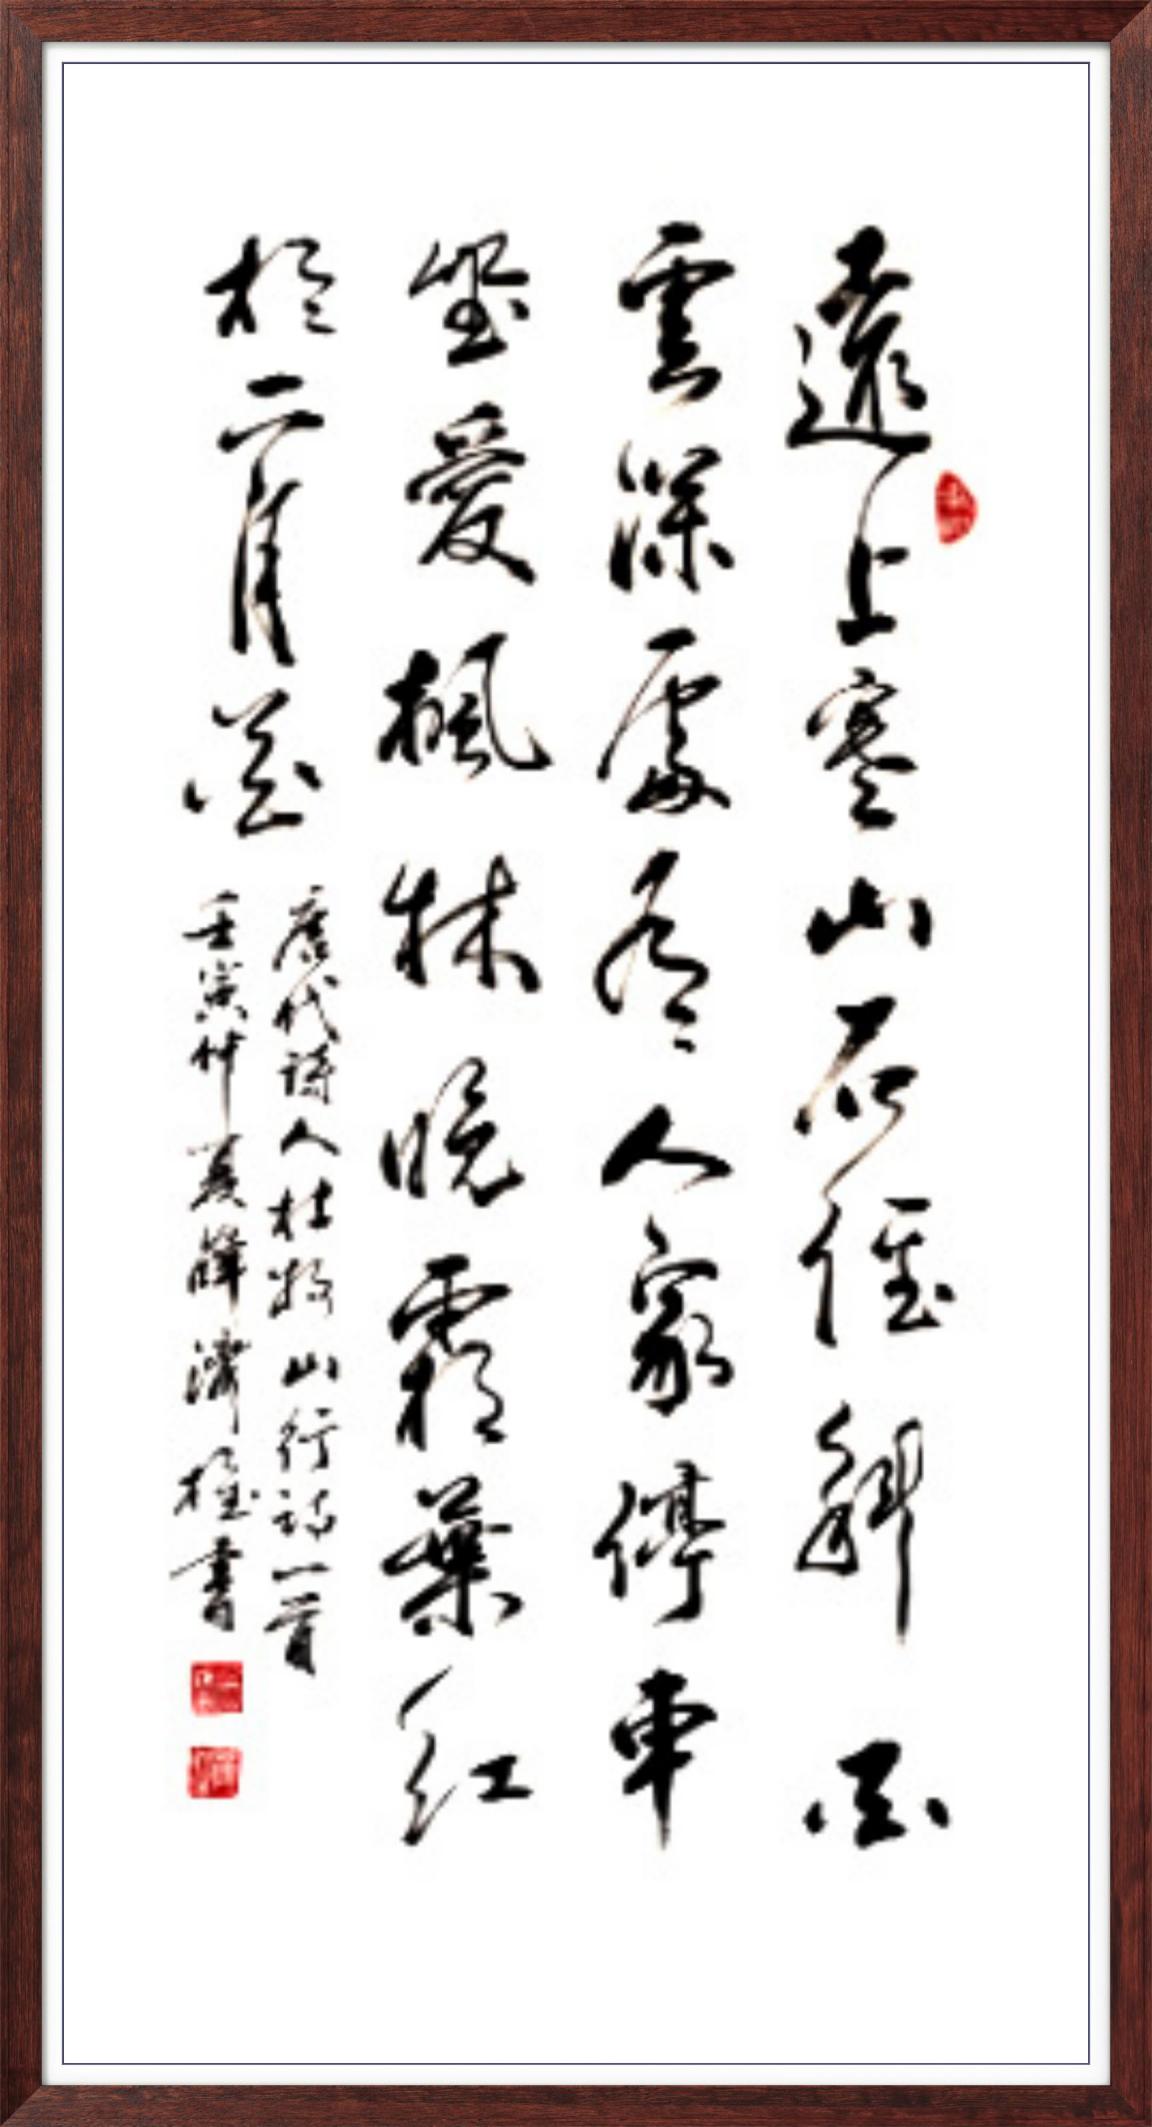 遠上寒山石徑斜白
雲深處有人家停車
坐愛楓林晚霜葉紅
於二月花
唐代詩人杜牧山行詩一首
壬寅仲夏薛濟書